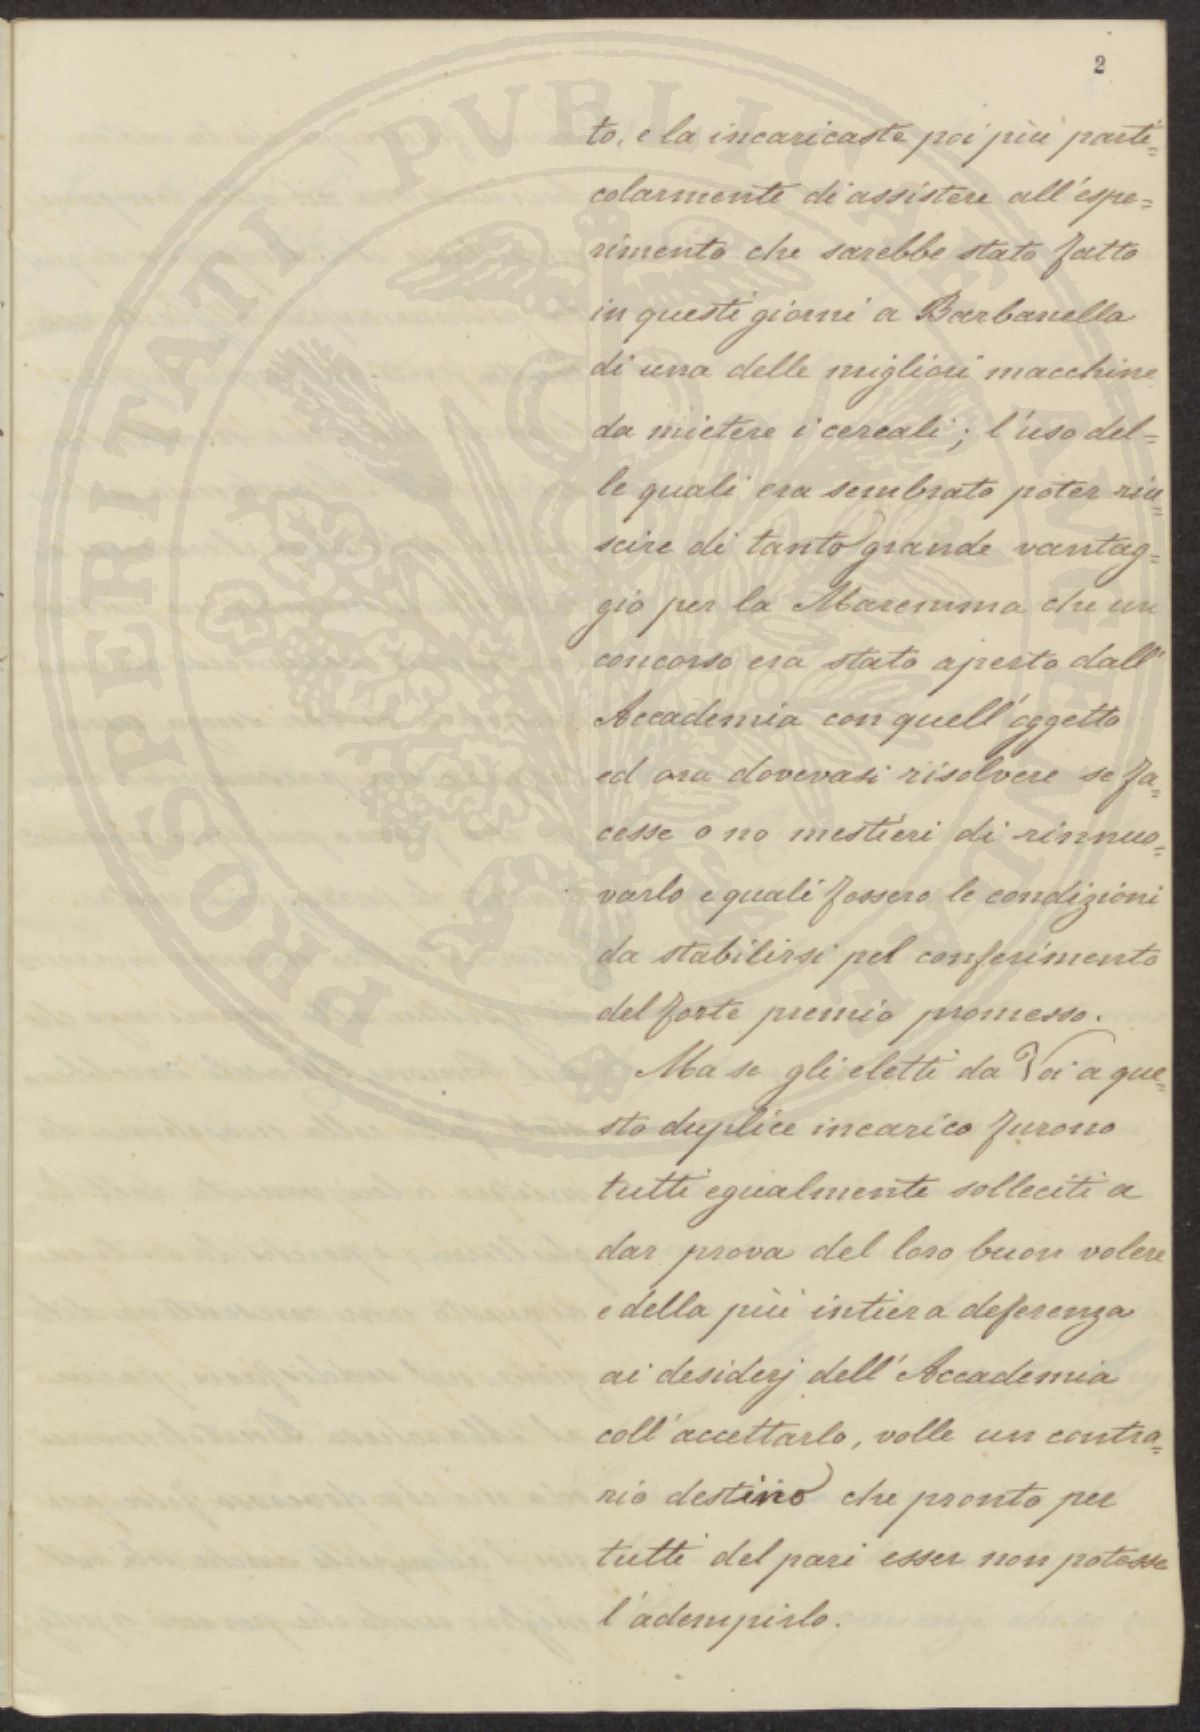 2
PROSPERITATI PUBLICAE AUGENDAE
to, e la incaricaste poi più parti=
colarmente di assistere all'espe=
rimento che sarebbe stato fatto
in questi giorni a Barbanella
di una delle migliori macchine
da mietere i cereali; l'uso del=
le quali era sembrato poter riu=
scire di tanto grande vantag=
gio per la Maremma che un
concorso era stato aperto dall'
Accademia con quell'oggetto
ed ora dovevasi risolvere se fa=
cesse o no mestieri di rinnuo=
varlo e quali fossero le condizioni
da stabilirsi pel conferimento
del forte premio promesso.
Ma se gli eletti da Voi a que=
sto duplice incarico furono
tutti egualmente solleciti a
dar prova del loro buon volere
e della più intiera deferenza
ai desiderj dell'Accademia
coll'accettarlo, volle un contra=
rio destino che pronto per
tutti del pari esser non potesse
l'adempirlo.